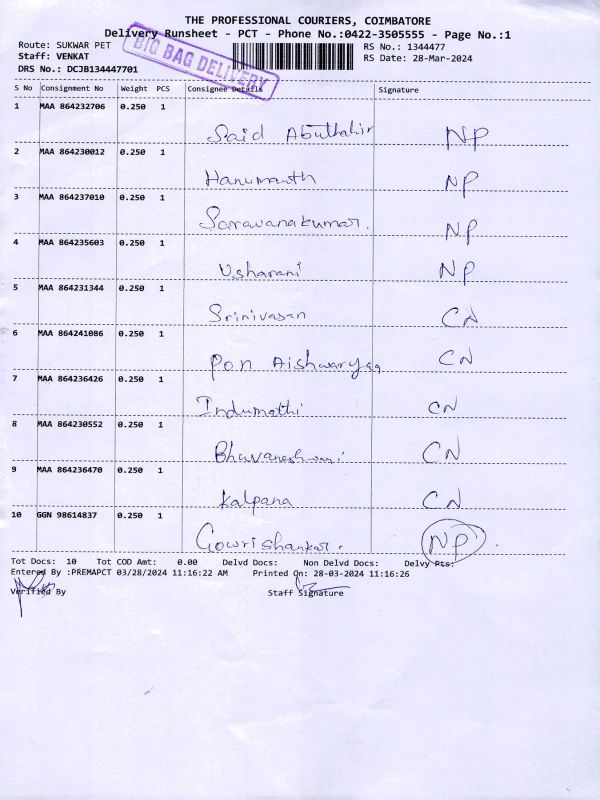 THE PROFESSIONAL COURIERS, COIMBATORE
Delivery Runsheet - PCT - Phone No.:0422-3505555 - Page No.:1
Route: SUKWAR PET
RS No.: 1344477
Staff: VENKAT
RS Date: 28-Mar-2024
DRS No.: DCJB134447701
BIG BAG DELIVERY
S No Consignment No Weight PCS Consignee Details Signature
1 MAA 864232706 0.250 1
Said Abuthahir NP
2 MAA 864230012 0.250 1
Hanumanth NP
3 MAA 864237010 0.250 1
Saravanakumar. NP
4 MAA 864235603 0.250 1
Usharani NP
5 MAA 864231344 0.250 1
Srinivasan CN
6 MAA 864241086 0.250 1
Pon Aishwaryaa CN
7 MAA 864236426 0.250 1
Indumathi CN
8 MAA 864230552 0.250 1
Bhuvaneshwari CN
9 MAA 864236470 0.250 1
Kalpana CN
10 GGN 98614837 0.250 1
Gowrishankar. NP.
Tot Docs: 10 Tot COD Amt: 0.00 Delvd Docs: Non Delvd Docs: Delvy Pts:
Entered By :PREMAPCT 03/28/2024 11:16:22 AM Printed On: 28-03-2024 11:16:26
Verified By Staff Signature